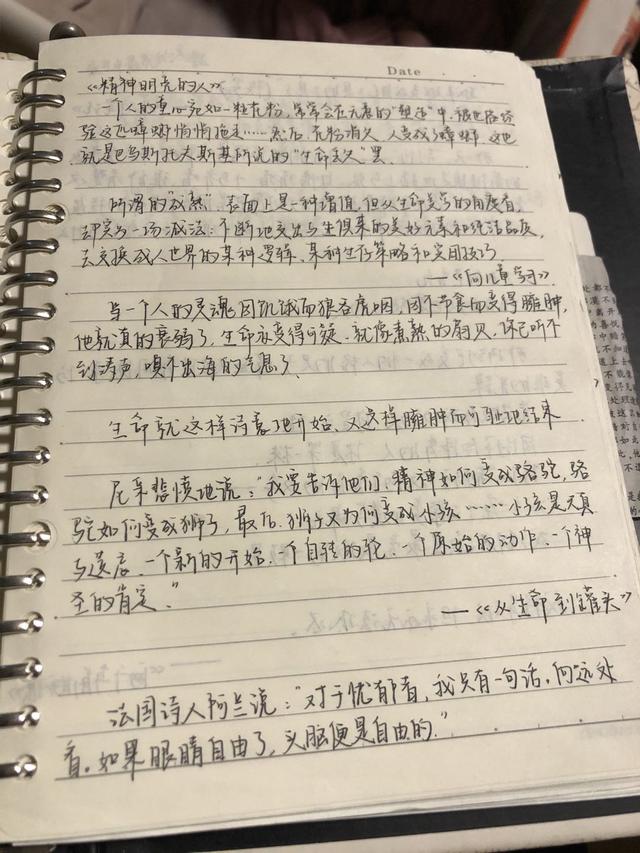 Date
《精神明亮的人》
一个人的童心宛如一粒花粉，常常会在无意的“塑造”中，被世俗经
验这匹蟑螂悄悄拖走……然后，花粉消失，人变成了蟑螂。这也
就是巴乌斯托夫斯基所说的“生命丢失”罢
所谓的“成熟”，表面上是一种增值，但从生命美学的角度看，
却实为一场减法：不断地交出与生俱来的美好元素和纯洁品质，
去交换成人世界的某种逻辑、某种生存策略和实用技巧
——《向儿童学习》
当一个人的灵魂因饥饿而狼吞虎咽，因不节食而变得臃肿，
他就真的衰弱了，生命亦变得可疑，就像煮熟的扇贝，你已听不
到涛声，嗅不出海的气息了
生命就这样诗意地开始，又这样臃肿而可耻地结束
尼采悲愤地说：“我要告诉他们，精神如何变成骆驼，骆
驼如何变成狮子，最后，狮子又为何变成小孩……小孩是天真
与遗忘，一个新的开始，一个自转的轮，一个原始的动作，一个神
圣的肯定。”
——《从生命到罐头》
法国诗人阿兰说：“对于忧郁者，我只有一句话，向远处
看。如果眼睛自由了，头脑便是自由的。”